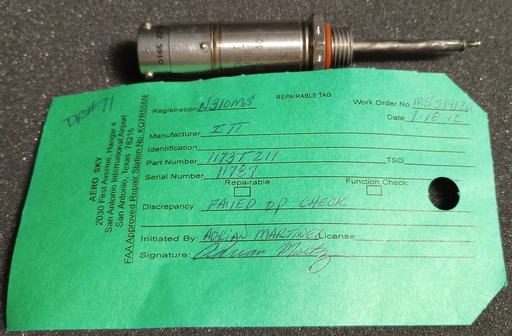 REPAIRABLE TAG
Registration N910MS
Work Order No.
Date 1-16-12
Manufacturer ITT
Identification
Part Number 1173T211
TSO
Serial Number 11787
Repairable
Function Check
Discrepancy FAILED OP CHECK
Initiated By: ADRIAN MARTINEZ License
Signature:
AERO SKY
2030 First Avenue, Hangar 4
San Antonio International Airport
San Antonio, Texas 78216
FAA Approved Repair Station No. KG7R556N